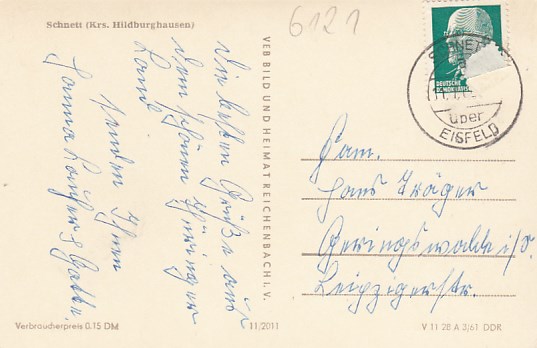 Schnett (Krs. Hildburghausen)
6121
Die besten Grüße aus
dem schönen Thüringer
Land
senden Ihnen
Gatte.
VEB BILD UND HEIMAT REICHENBACH I. V.
SCHNETT
über
EISFELD
DEUTSCHE
Fam.
Hans Träger
Geringswalde i/S.
Leipzigerstr.
Verbraucherpreis 0.15 DM
11/2011
V 11 28 A 3/61 DDR